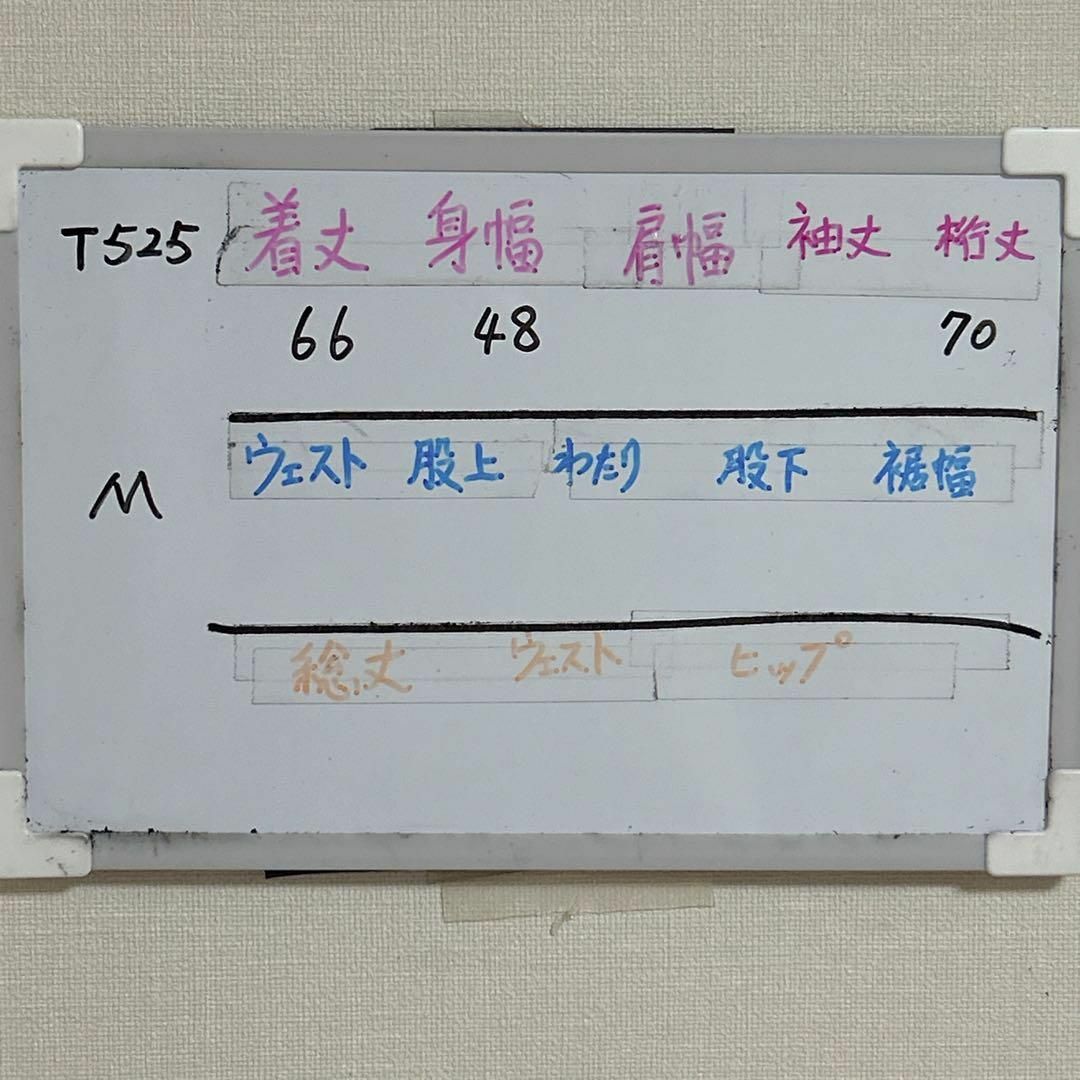 T525 着丈 身幅 肩幅 袖丈 裄丈
66 48 70
M ウェスト 股上 わたり 股下 裾幅
総丈 ウェスト ヒップ